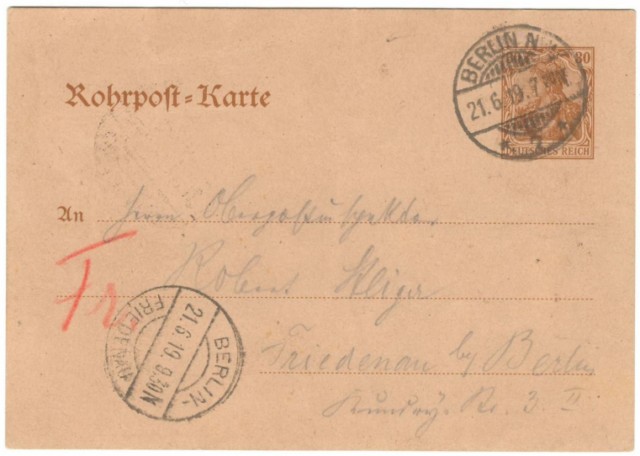 BERLIN N.
21.6.19.7
30
DEUTSCHES REICH
Rohrpost-Karte
An Herrn Oberpostinspektor
Robert
Fr.
Friedenau by Berlin
Kundry. Str. 3 II
BERLIN-
21.6.19.9.30N
FRIEDENAU